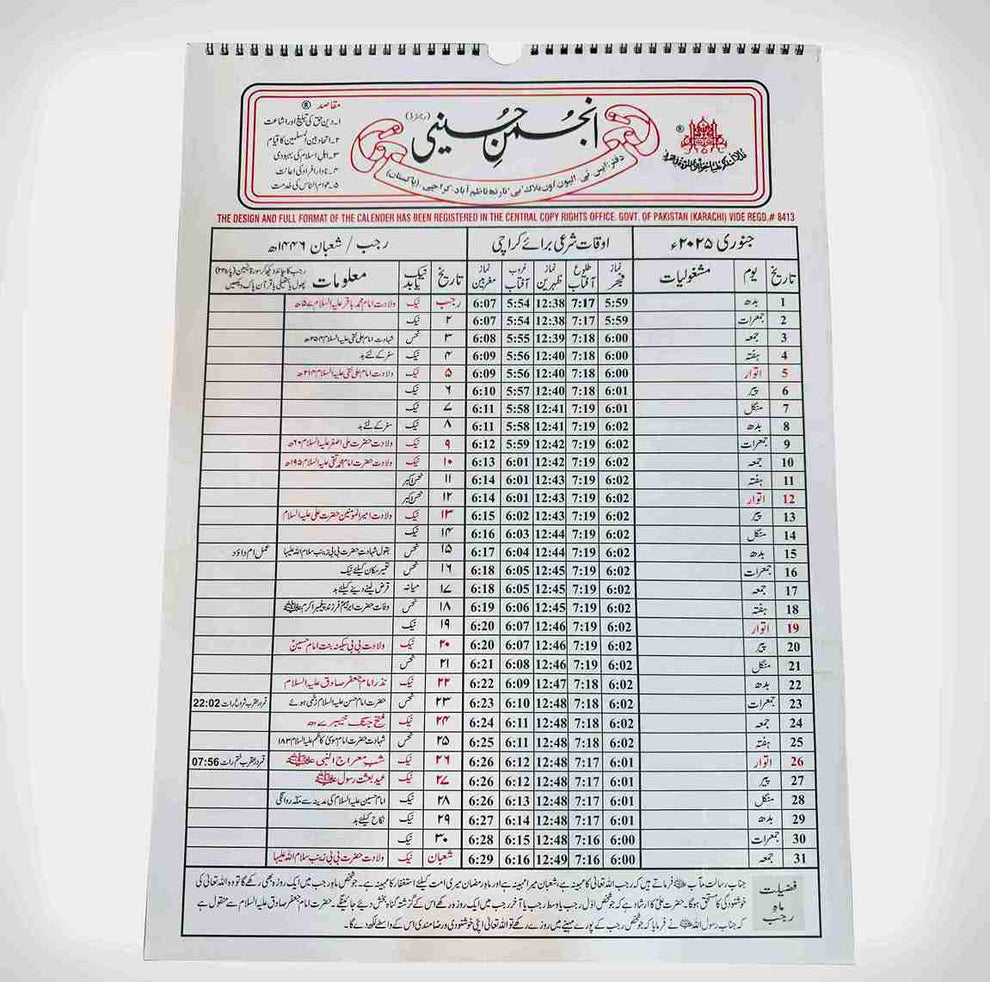 مقاصد ®
۱۔ دین حق کی تبلیغ اور اشاعت
۲۔ اتحاد بین المسلمین کا قیام
۳۔ اہل اسلام کی بہبودی
۴۔ نادار افراد کی اعانت
۵۔ عوام الناس کی خدمت
انجمن حسینی (رجسٹرڈ)
®
دفتر: ایس ٹی الیون اون بلاک "بی" نارتھ ناظم آباد، کراچی (پاکستان)
THE DESIGN AND FULL FORMAT OF THE CALENDER HAS BEEN REGISTERED IN THE CENTRAL COPY RIGHTS OFFICE. GOVT. OF PAKISTAN (KARACHI) VIDE REGD.# 8413
جنوری ۲۰۲۵ء اوقات شرعی برائے کراچی رجب / شعبان ۱۴۴۶ھ
تاریخ یوم مشغولیات نماز فجر طلوع آفتاب نماز ظہرین غروب آفتاب نماز مغربین تاریخ نیک یا بد معلومات
1 بدھ 5:59 7:17 12:38 5:54 6:07 رجب نیک ولادت امام محمد باقر علیہ السلام ۵۷ھ
2 جمعرات 5:59 7:17 12:38 5:54 6:07 ۲ نیک
3 جمعہ 6:00 7:18 12:39 5:55 6:08 ۳ نحس شہادت امام علی نقی علیہ السلام ۲۵۴ھ
4 ہفتہ 6:00 7:18 12:40 5:56 6:09 ۴ نیک سفر کے لئے بد
5 اتوار 6:00 7:18 12:40 5:56 6:09 ۵ نیک ولادت امام علی نقی علیہ السلام ۲۱۴ھ
6 پیر 6:01 7:18 12:40 5:57 6:10 ۶ نیک
7 منگل 6:01 7:19 12:41 5:58 6:11 ۷ نیک
8 بدھ 6:02 7:19 12:41 5:58 6:11 ۸ نیک سفر کے لئے بد
9 جمعرات 6:02 7:19 12:42 5:59 6:12 ۹ نیک ولادت حضرت علی اصغر علیہ السلام ۶۰ھ
10 جمعہ 6:02 7:19 12:42 6:01 6:13 ۱۰ نیک ولادت حضرت امام محمد تقی علیہ السلام ۱۹۵ھ
11 ہفتہ 6:02 7:19 12:43 6:01 6:14 ۱۱ نحس اکبر
12 اتوار 6:02 7:19 12:43 6:01 6:14 ۱۲ نحس اکبر
13 پیر 6:02 7:19 12:43 6:02 6:15 ۱۳ نیک ولادت امیر المومنین حضرت علی علیہ السلام
14 منگل 6:02 7:19 12:44 6:03 6:16 ۱۴ نیک
15 بدھ 6:02 7:19 12:44 6:04 6:17 ۱۵ نحس بقول شہادت حضرت بی بی زینب سلام اللہ علیہا عمل ام داؤد
16 جمعرات 6:02 7:19 12:45 6:05 6:18 ۱۶ نحس تعمیر مکان کیلئے نیک
17 جمعہ 6:02 7:19 12:45 6:05 6:18 ۱۷ میانہ قرض لینے دینے کیلئے بد
18 ہفتہ 6:02 7:19 12:45 6:06 6:19 ۱۸ نحس وفات حضرت ابراہیم فرزند پیغمبر اکرم ﷺ
19 اتوار 6:02 7:19 12:46 6:07 6:20 ۱۹ نیک
20 پیر 6:02 7:19 12:46 6:07 6:20 ۲۰ نیک ولادت بی بی سکینہ بنت امام حسین
21 منگل 6:02 7:19 12:46 6:08 6:21 ۲۱ نحس
22 بدھ 6:02 7:18 12:47 6:09 6:22 ۲۲ نیک نذر امام جعفر صادق علیہ السلام
23 جمعرات 6:02 7:18 12:48 6:10 6:23 ۲۳ نحس حضرت امام حسن علیہ السلام زخمی ہوئے قمر در عقرب شروع رات 22:02
24 جمعہ 6:02 7:18 12:48 6:11 6:24 ۲۴ نیک فتح جنگ خیبر ۷ھ
25 ہفتہ 6:02 7:18 12:48 6:11 6:25 ۲۵ نحس شہادت امام موسیٰ کاظم علیہ السلام ۱۸۳
26 اتوار 6:01 7:17 12:48 6:12 6:26 ۲۶ نیک شب معراج النبی ﷺ قمر در عقرب ختم رات 07:56
27 پیر 6:01 7:17 12:48 6:12 6:26 ۲۷ نیک عید بعثت رسول ﷺ
28 منگل 6:01 7:17 12:48 6:13 6:26 ۲۸ نیک امام حسین علیہ السلام کی مدینہ سے مکہ روانگی
29 بدھ 6:01 7:17 12:48 6:14 6:27 ۲۹ نیک نکاح کیلئے بد
30 جمعرات 6:00 7:16 12:48 6:15 6:28 ۳۰ نیک
31 جمعہ 6:00 7:16 12:49 6:16 6:29 شعبان نیک ولادت حضرت بی بی زینب سلام اللہ علیہا
فضیلت ماہ رجب
جناب رسالت مآب ﷺ فرماتے ہیں کہ رجب اللہ تعالیٰ کا مہینہ ہے، شعبان میرا مہینہ ہے اور ماہ رمضان میری امت کیلئے استغفار کا مہینہ ہے۔ جو شخص ماہ رجب میں ایک روزہ بھی رکھے گا تو وہ اللہ تعالیٰ کی
خوشنودی کا مستحق ہوگا۔ حضرت علیؑ کا ارشاد ہے کہ جو شخص اوّل رجب یا وسط رجب یا آخر رجب میں ایک روزہ رکھے اس کے گزشتہ گناہ بخش دیئے جائینگے۔ حضرت امام جعفر صادق علیہ السلام سے منقول ہے
کہ جناب رسول اللہ ﷺ نے فرمایا کہ جو شخص رجب کے پورے مہینے میں روزے رکھے تو اللہ تعالیٰ اپنی خوشنودی و رضا مندی اس کے واسطے لکھ دے گا۔